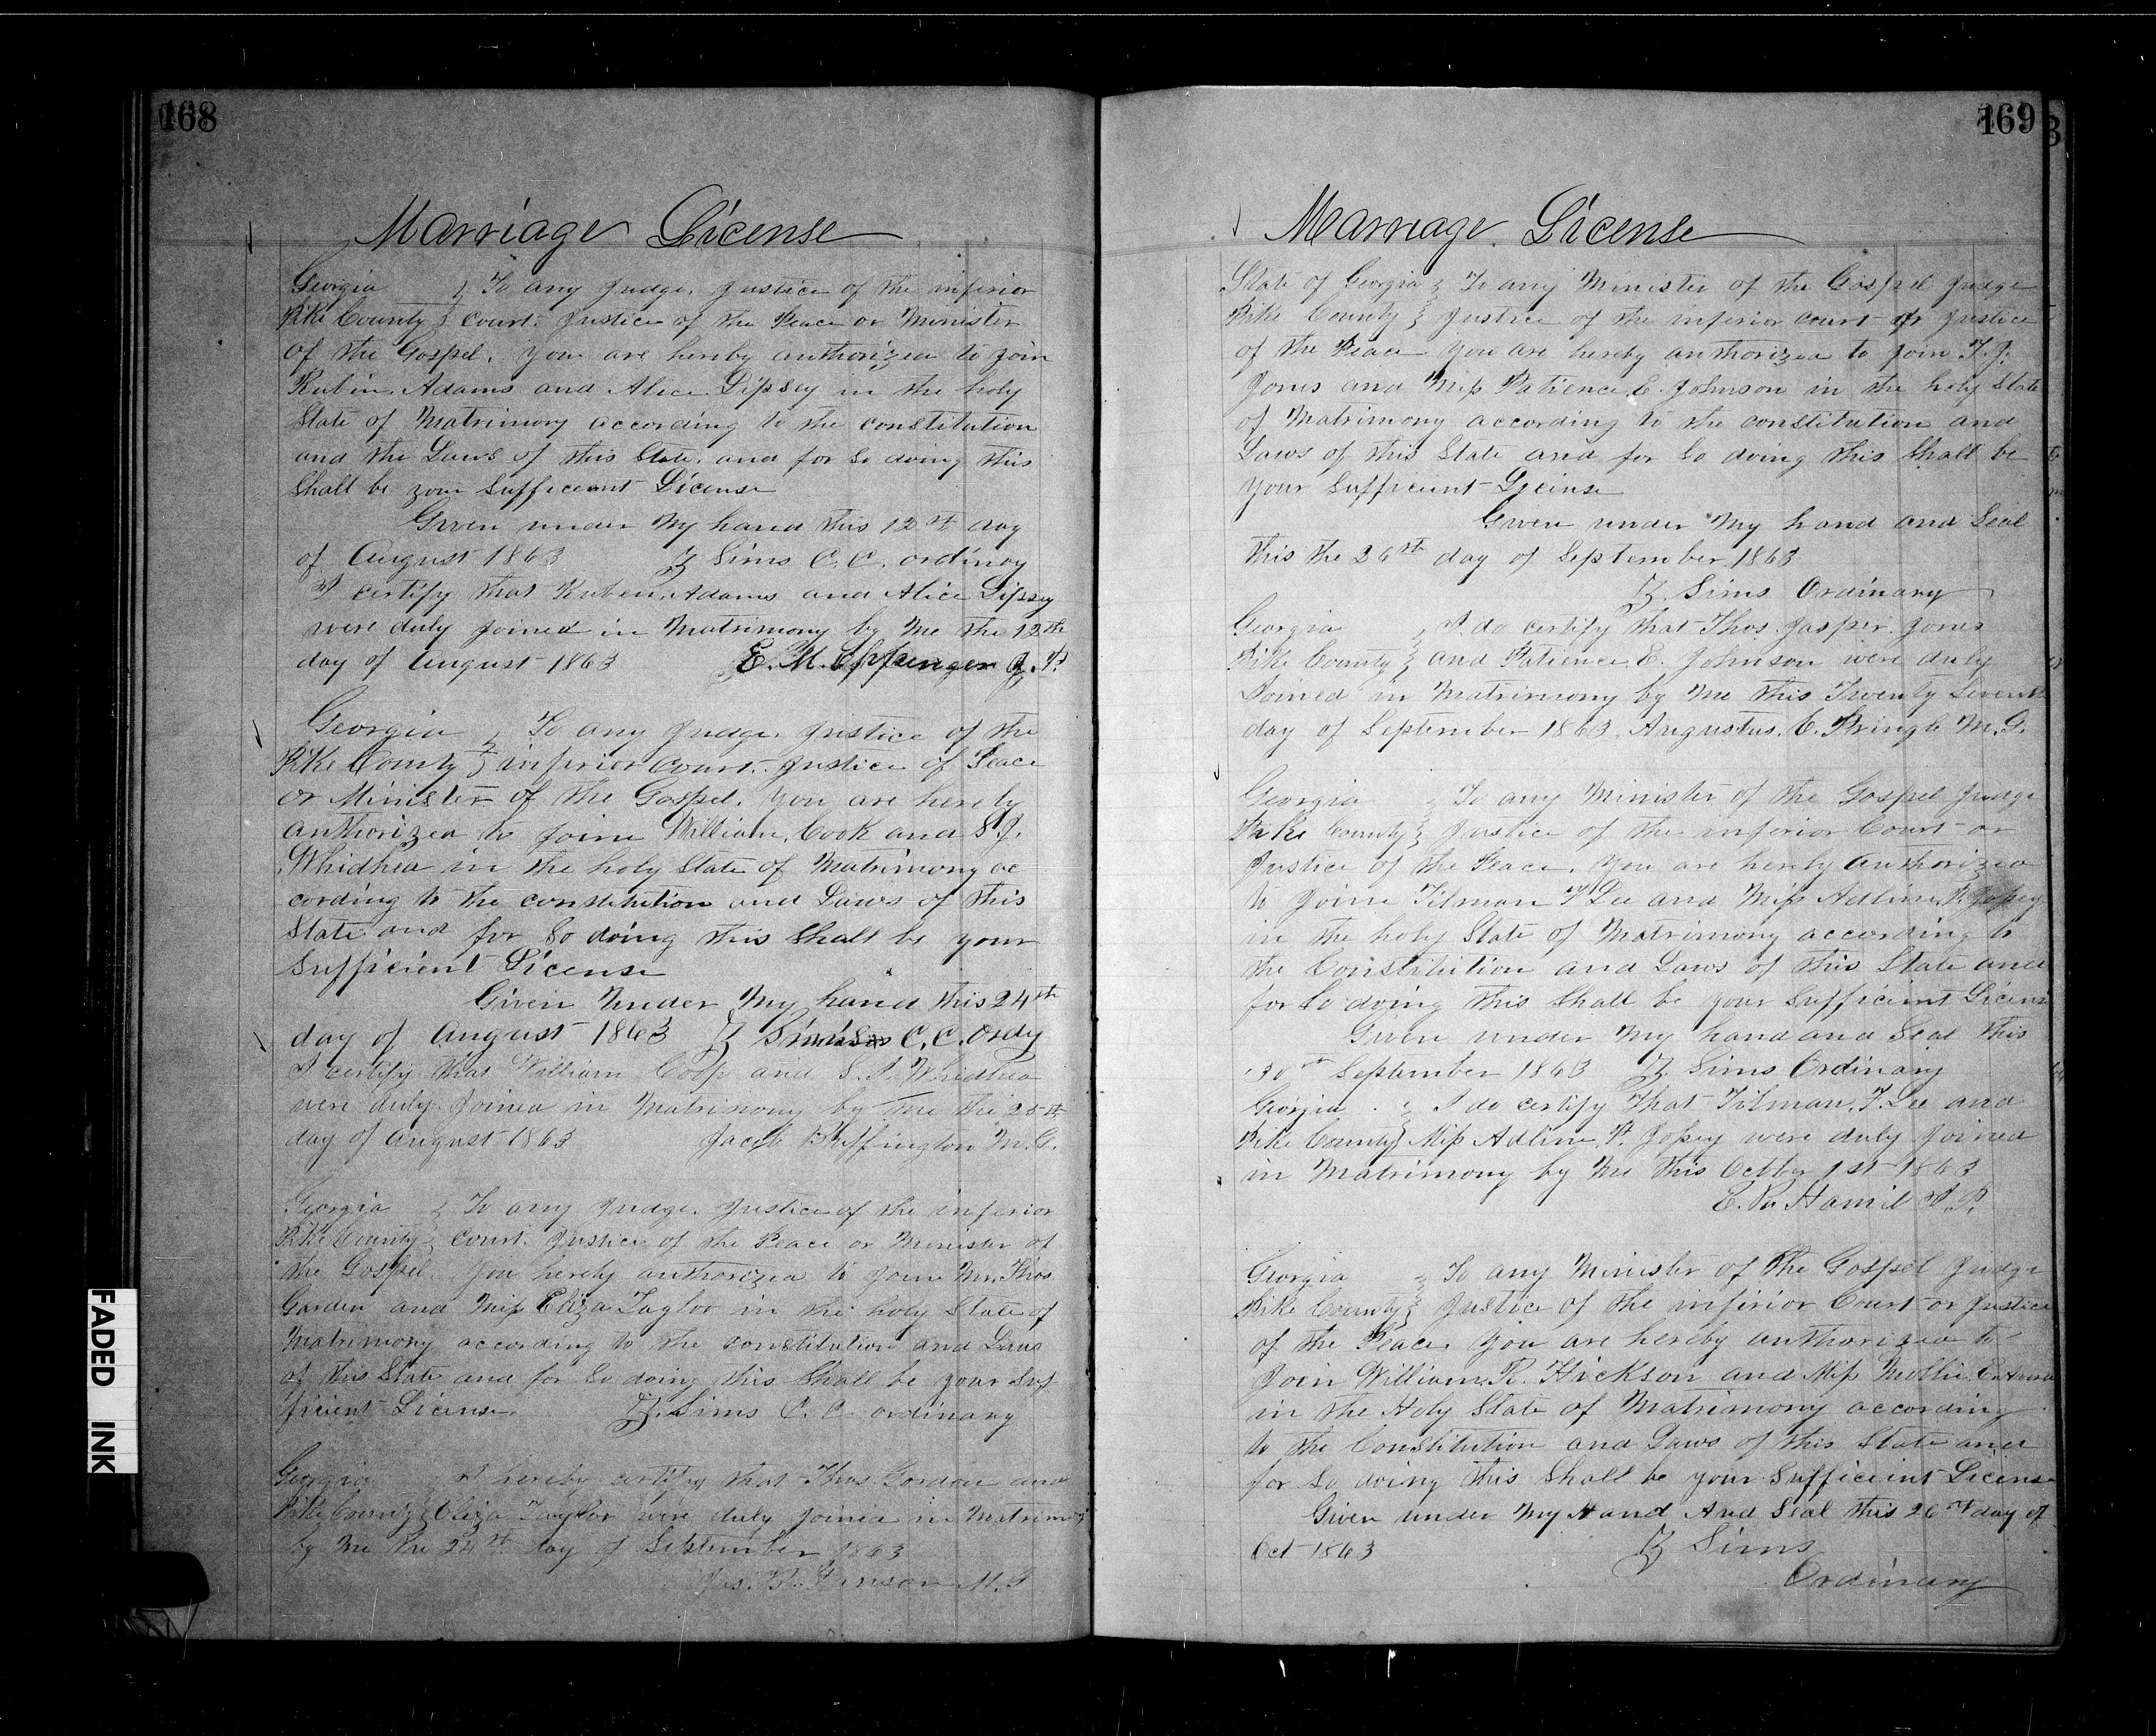 168
Marriage License
Georgia } To any Judge, Justice of the inferior
Pike County } Court. Justice of the Peace or Minister
of the Gospel. You are hereby authorized to join
Rubin Adams and Alice Lipsey in the holy
State of Matrimony according to the constitution
and the Laws of this State. and for So doing this
Shall be your Sufficient License
Given under My hand this 12th day
of August 1863 Z Sims C. C. ordinay
I certify that Ruben Adams and Alice Lipsey
were duly joined in Matrimony by Me the 12th
day of August 1863 E. M. Eppinger J. P.
Georgia } To any Judge, Justice of the
Pike County } inferior Court. Justice of Peace
or Minister of the Gospel. You are hereby
authorized to joine William Cook and S. J.
Whidhea in the holy State of Matrimony ac
cording to the constitution and Laws of this
State and for So doing this Shall be your
Sufficient License
Given Under My hand this 24th
day of August 1863 Z Sims C. C. Ordy
I certify that William and S. J. Whidhea
were duly joined in Matrimony by me the 25th
day of August 1863 Jacob Buffington M. G.
Georgia } To any Judge. Justice of the inferior
Pike County } Court. Justice of the Peace or Minister of
the Gospel. You hereby authorized to join Mr. Thos
Garden and Miss Eliza Taylor in the holy State of
Matrimony according to the constitution and Laws
of this State and for So doing this Shall be your Suf
ficient License. Z. Sims C. C. ordinary
Georgia } I hereby certify that Thos Gordon and
Pike County } Eliza Taylor were duly joined in Matrimony
by Me the 24th day of September 1863
Jas. M. G
169
Marriage License
State of Georgia } To any Minister of the Gospel Judge
Pike County } Justice of the inferior court or Justice
of the Peace You are hereby authorized to join T. J.
Jones and Miss Patience E. Johnson in the holy State
of Matrimony according to the constitution and
Laws of this State and for So doing this Shall be
your Sufficient License
Given under My hand and Seal
this the 26th day of September 1863
Z. Sims Ordinary
Georgia } I do certify that Thos. Jasper Jones
Pike County } and Patience E. Johnson were duly
Joined in Matrimony by Me this Twenty Seventh
day of September 1863. Augustus C. Pringle M. G.
Georgia } To any Minister of the Gospel Judge
Pike County } Justice of the inferior Court or
Justice of the Peace. You are hereby authorized
to Joine Tilman T Lee and Miss Adline P.
in the holy State of Matrimony according to
the Constitution and Laws of this State and
for So doing this Shall be your Sufficient License
Given under My hand and Seal this
30th September 1863 Z. Sims Ordinary
Georgia } I do certify that Tilman T. Lee and
Pike County } Miss Adline P. were duly joined
in Matrimony by Me this October 1st 1863
Hamil J. P.
Georgia } To any Minister of the Gospel Judge
Pike County } Justice of the inferior Court or Justice
of the Peace You are hereby authorized to
Join William R. Hickson and Miss Mollie
in the Holy State of Matrimony according
to the Constitution and Laws of this State and
for So doing this Shall be your Sufficient License
Given under My Hand And Seal this 26th day of
Oct 1863 Z Sims
Ordinary
FADED INK